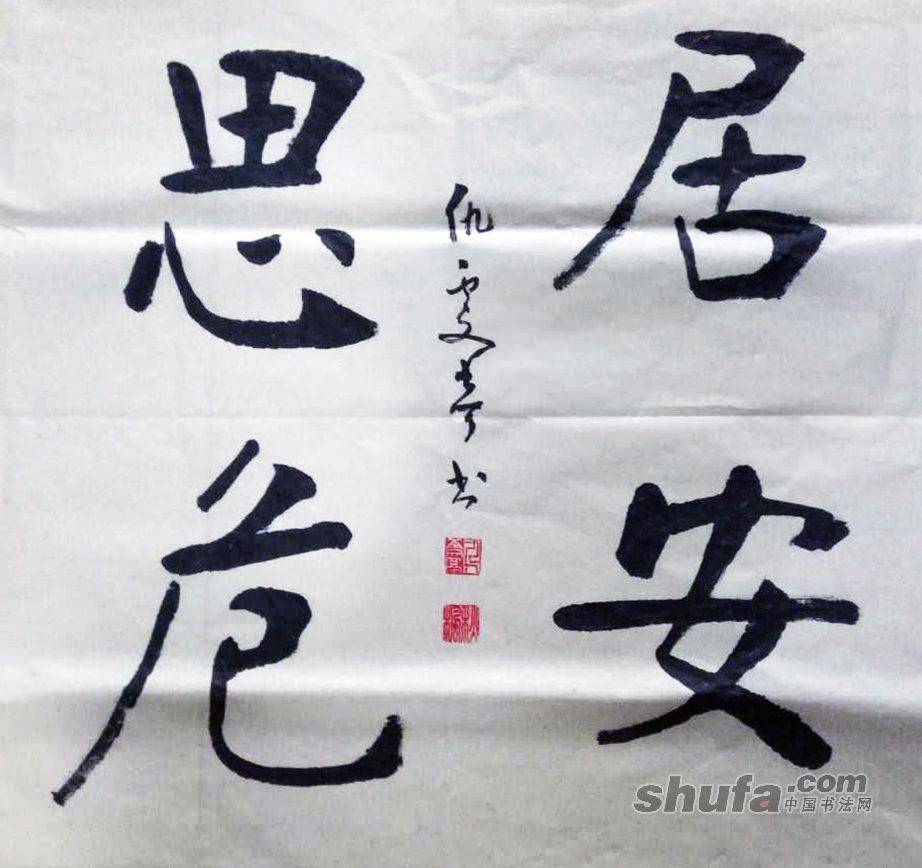 居安
思危
仇
书
shufa.com
中国书法网